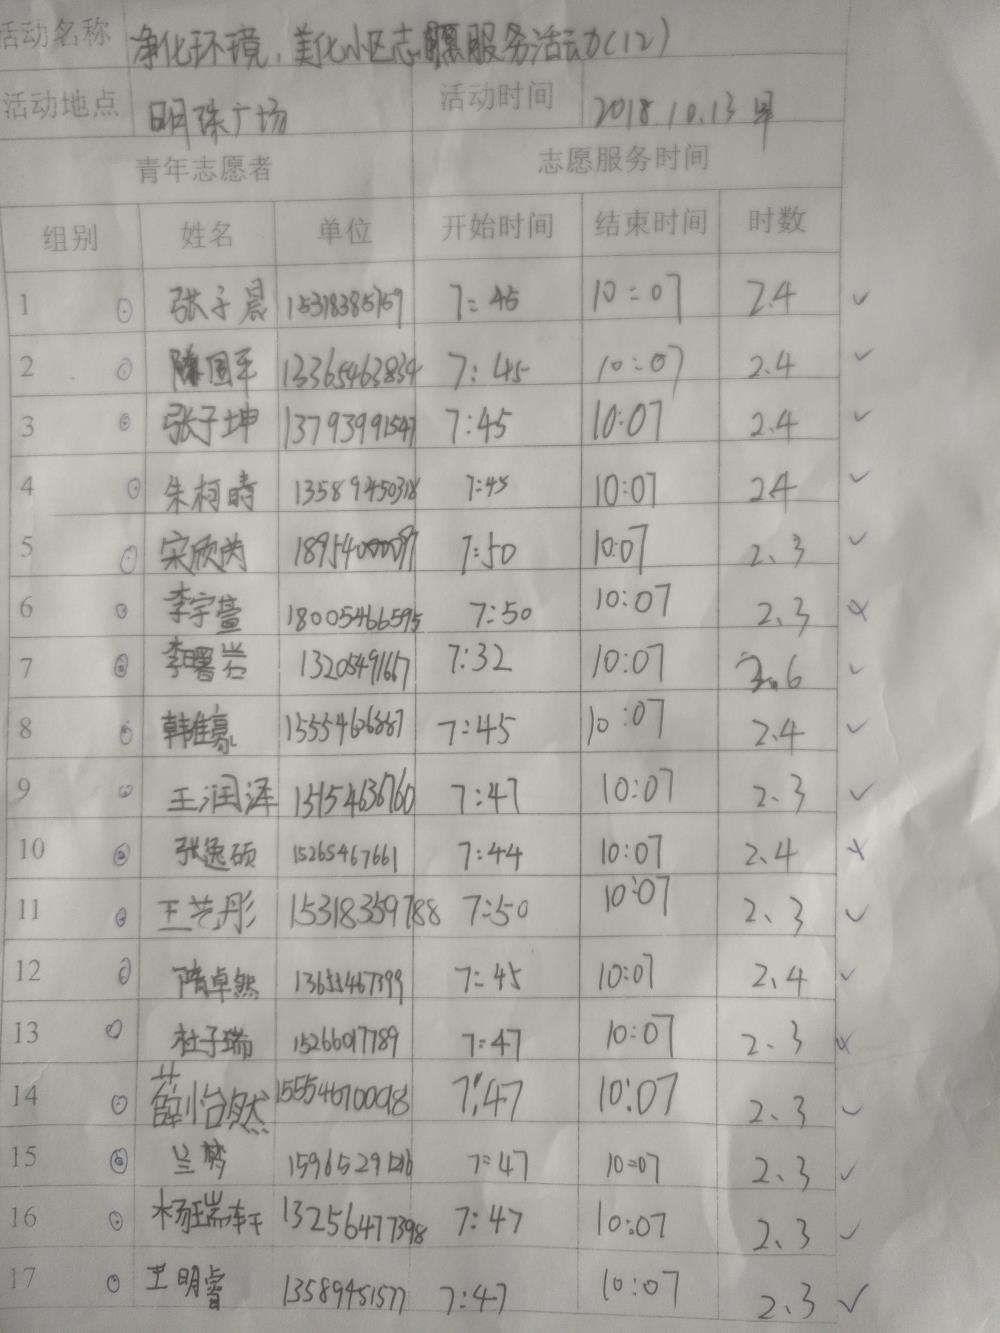 活动名称 净化环境,美化小区志愿服务活动(12)
活动地点 明珠广场 活动时间 2018.10.13 早
青年志愿者 志愿服务时间
组别 姓名 单位 开始时间 结束时间 时数
1 张子晨 15318385759 7:45 10:07 2.4
2 陈国军 13365463834 7:45 10:07 2.4
3 张子坤 13793991547 7:45 10:07 2.4
4 朱柯晴 13589450318 7:45 10:07 2.4
5 宋欣芮 7:50 10:07 2.3
6 李宇萱 18005466595 7:50 10:07 2.3
7 李曙岩 13205491667 7:32 10:07 2.6
8 韩维豪 7:45 10:07 2.4
9 王润泽 13154636760 7:47 10:07 2.3
10 张逸硕 15265467661 7:44 10:07 2.4
11 王艺彤 15318359788 7:50 10:07 2.3
12 隋卓然 13655467399 7:45 10:07 2.4
13 杜子瑞 15266017789 7:47 10:07 2.3
14 薛怡然 15554670098 7:47 10:07 2.3
15 兰梦 7:47 10:07 2.3
16 杨瑞轩 13256477398 7:47 10:07 2.3
17 王明睿 13589451577 7:47 10:07 2.3